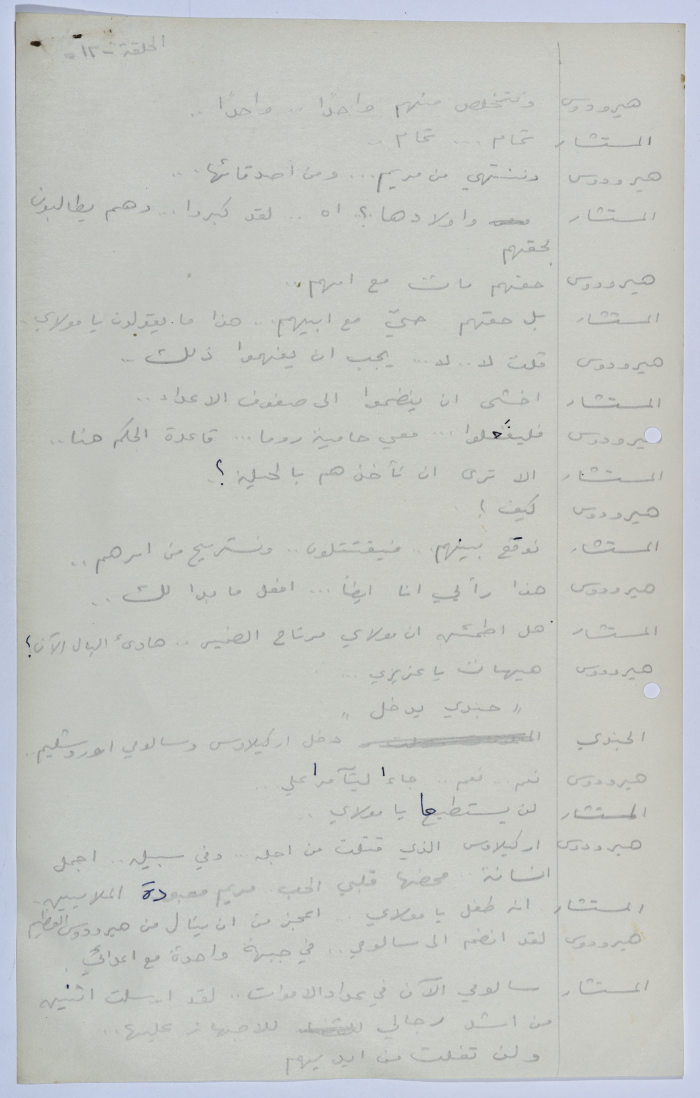 الحلقة - ١٢ -
هيرودوس ونتخلص منهم واحدًا .. واحدًا ..
المستشار تمام ... تمام ..
هيرودوس وننتهي من مريم ... ومن اصدقائها ...
المستشار واولادها؟ اه .. لقد كبروا .. وهم يطالبون
بحقهم
هيرودوس حقهم مات مع امهم ..
المستشار بل حقهم حيّ مع ابيهم .. هذا ما يقولون يا مولاي ..
هيرودوس قلت لا .. لا ... يجب ان يفهموا ذلك ..
المستشار اخشى ان ينضموا الى صفوف الاعداء ..
هيرودوس فليفعلوا ... معي حامية روما ... قاعدة الحكم هنا ..
المستشار الا ترى ان نأخذهم بالحيلة ؟
هيرودوس كيف !
المستشار نوقع بينهم .. فيقتتلون .. ونستريح من امرهم ..
هيرودوس هذا رأيي انا ايضًا ... افعل ما بدا لك ..
المستشار هل اطمئن ان مولاي مرتاح الضمير .. هادئ البال الآن ؟
هيرودوس هيهات يا عزيزي ...
" جندي يدخل "
الجندي دخل اركيلاوس وسالومي اوروشليم ..
هيرودوس نعم .. نعم .. جاءا ليتآمرا علي ..
المستشار لن يستطيعا يا مولاي ..
هيرودوس اركيلاوس الذي قتلت من اجله .. وفي سبيله .. اجمل
انسانة محضها قلبي الحب .. مريم معبودة الملايين ..
المستشار انه طفل يا مولاي .. اعجز من ان ينال من هيرودوس العظيم
هيرودوس لقد انضم الى سالومي .. في جبهة واحدة مع اعدائي
المستشار سالومي الآن في عداد الاموات .. لقد ارسلت اثنين
من اشد رجالي للاجهاز عليها ..
ولن تفلت من ايديهم